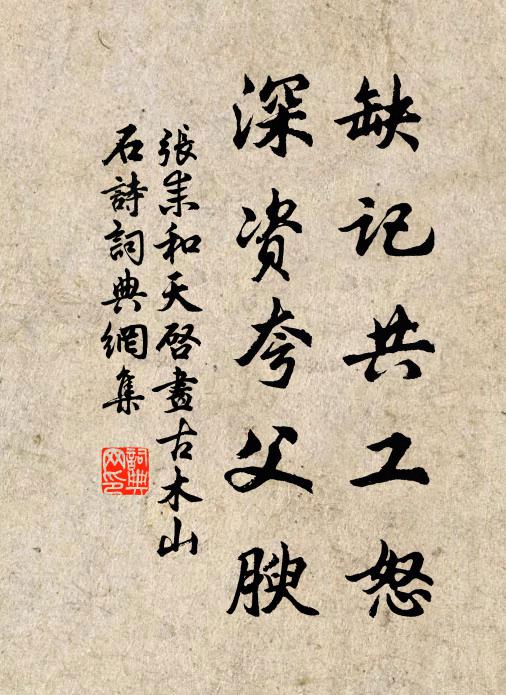 缺记共工怒
深资夸父腴
張耒和天啓畫古木山
石詩詞典網集
詞典
网印